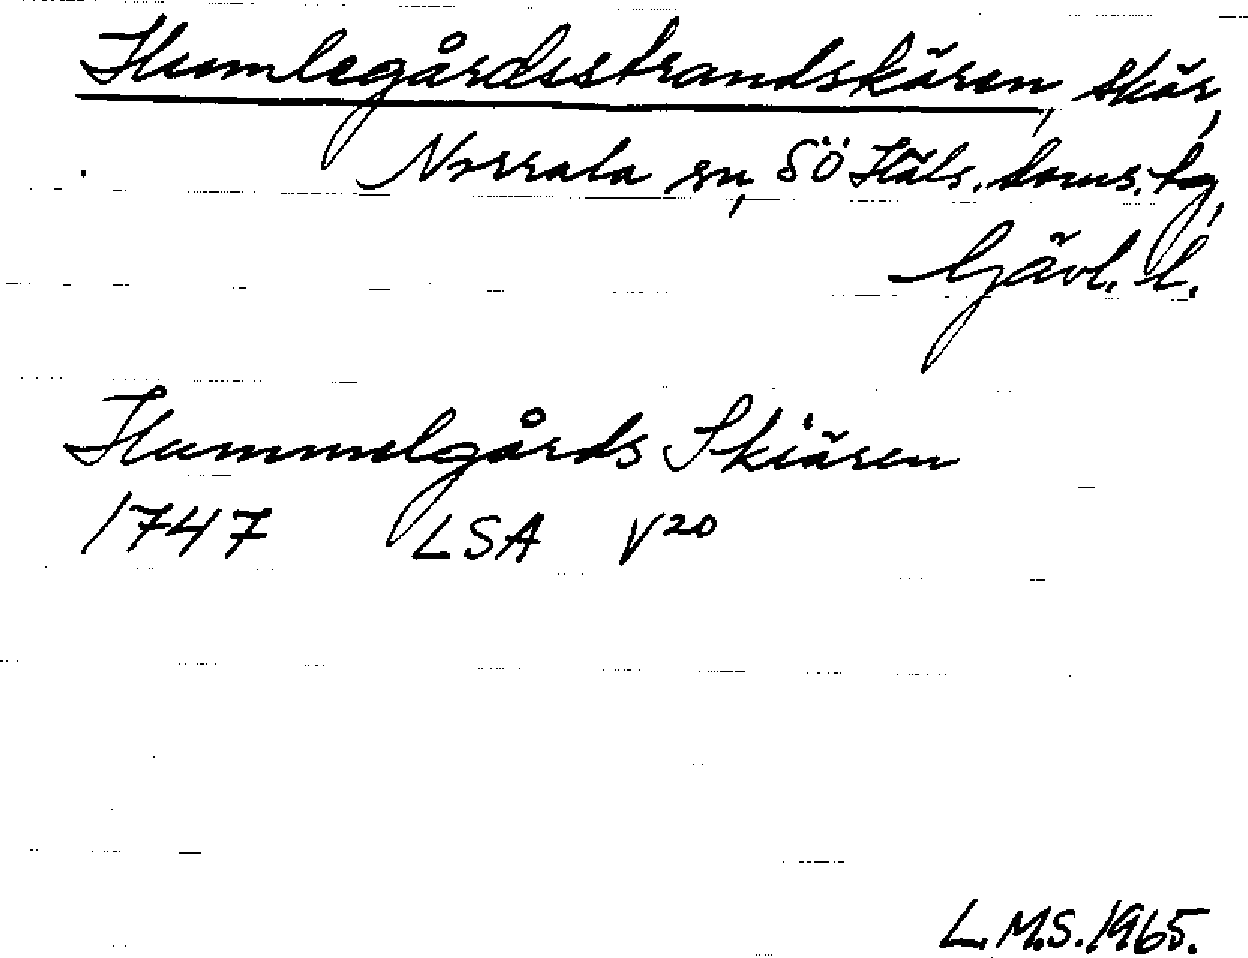 Humlegårdsstrandskären, skär,
Norrala sn, SÖ Häls. doms. hg,
Gävl. l.
Hummelgårds Skiären
1747 LSA V20
L.M.S. 1965.